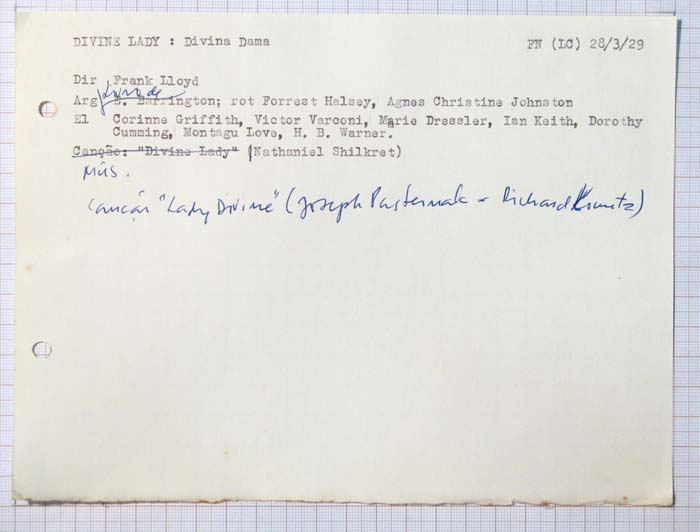 DIVINE LADY : Divina Dama FN (LC) 28/3/29
Dir Frank Lloyd
Arg E. Barrington; rot Forrest Halsey, Agnes Christine Johnston
El Corinne Griffith, Victor Varconi, Marie Dressler, Ian Keith, Dorothy
Cumming, Montagu Love, H. B. Warner.
Canção: "Divine Lady" (Nathaniel Shilkret)
Mús.
Canção "Lady Divine" (Joseph Pasternak - Richard Kountz)